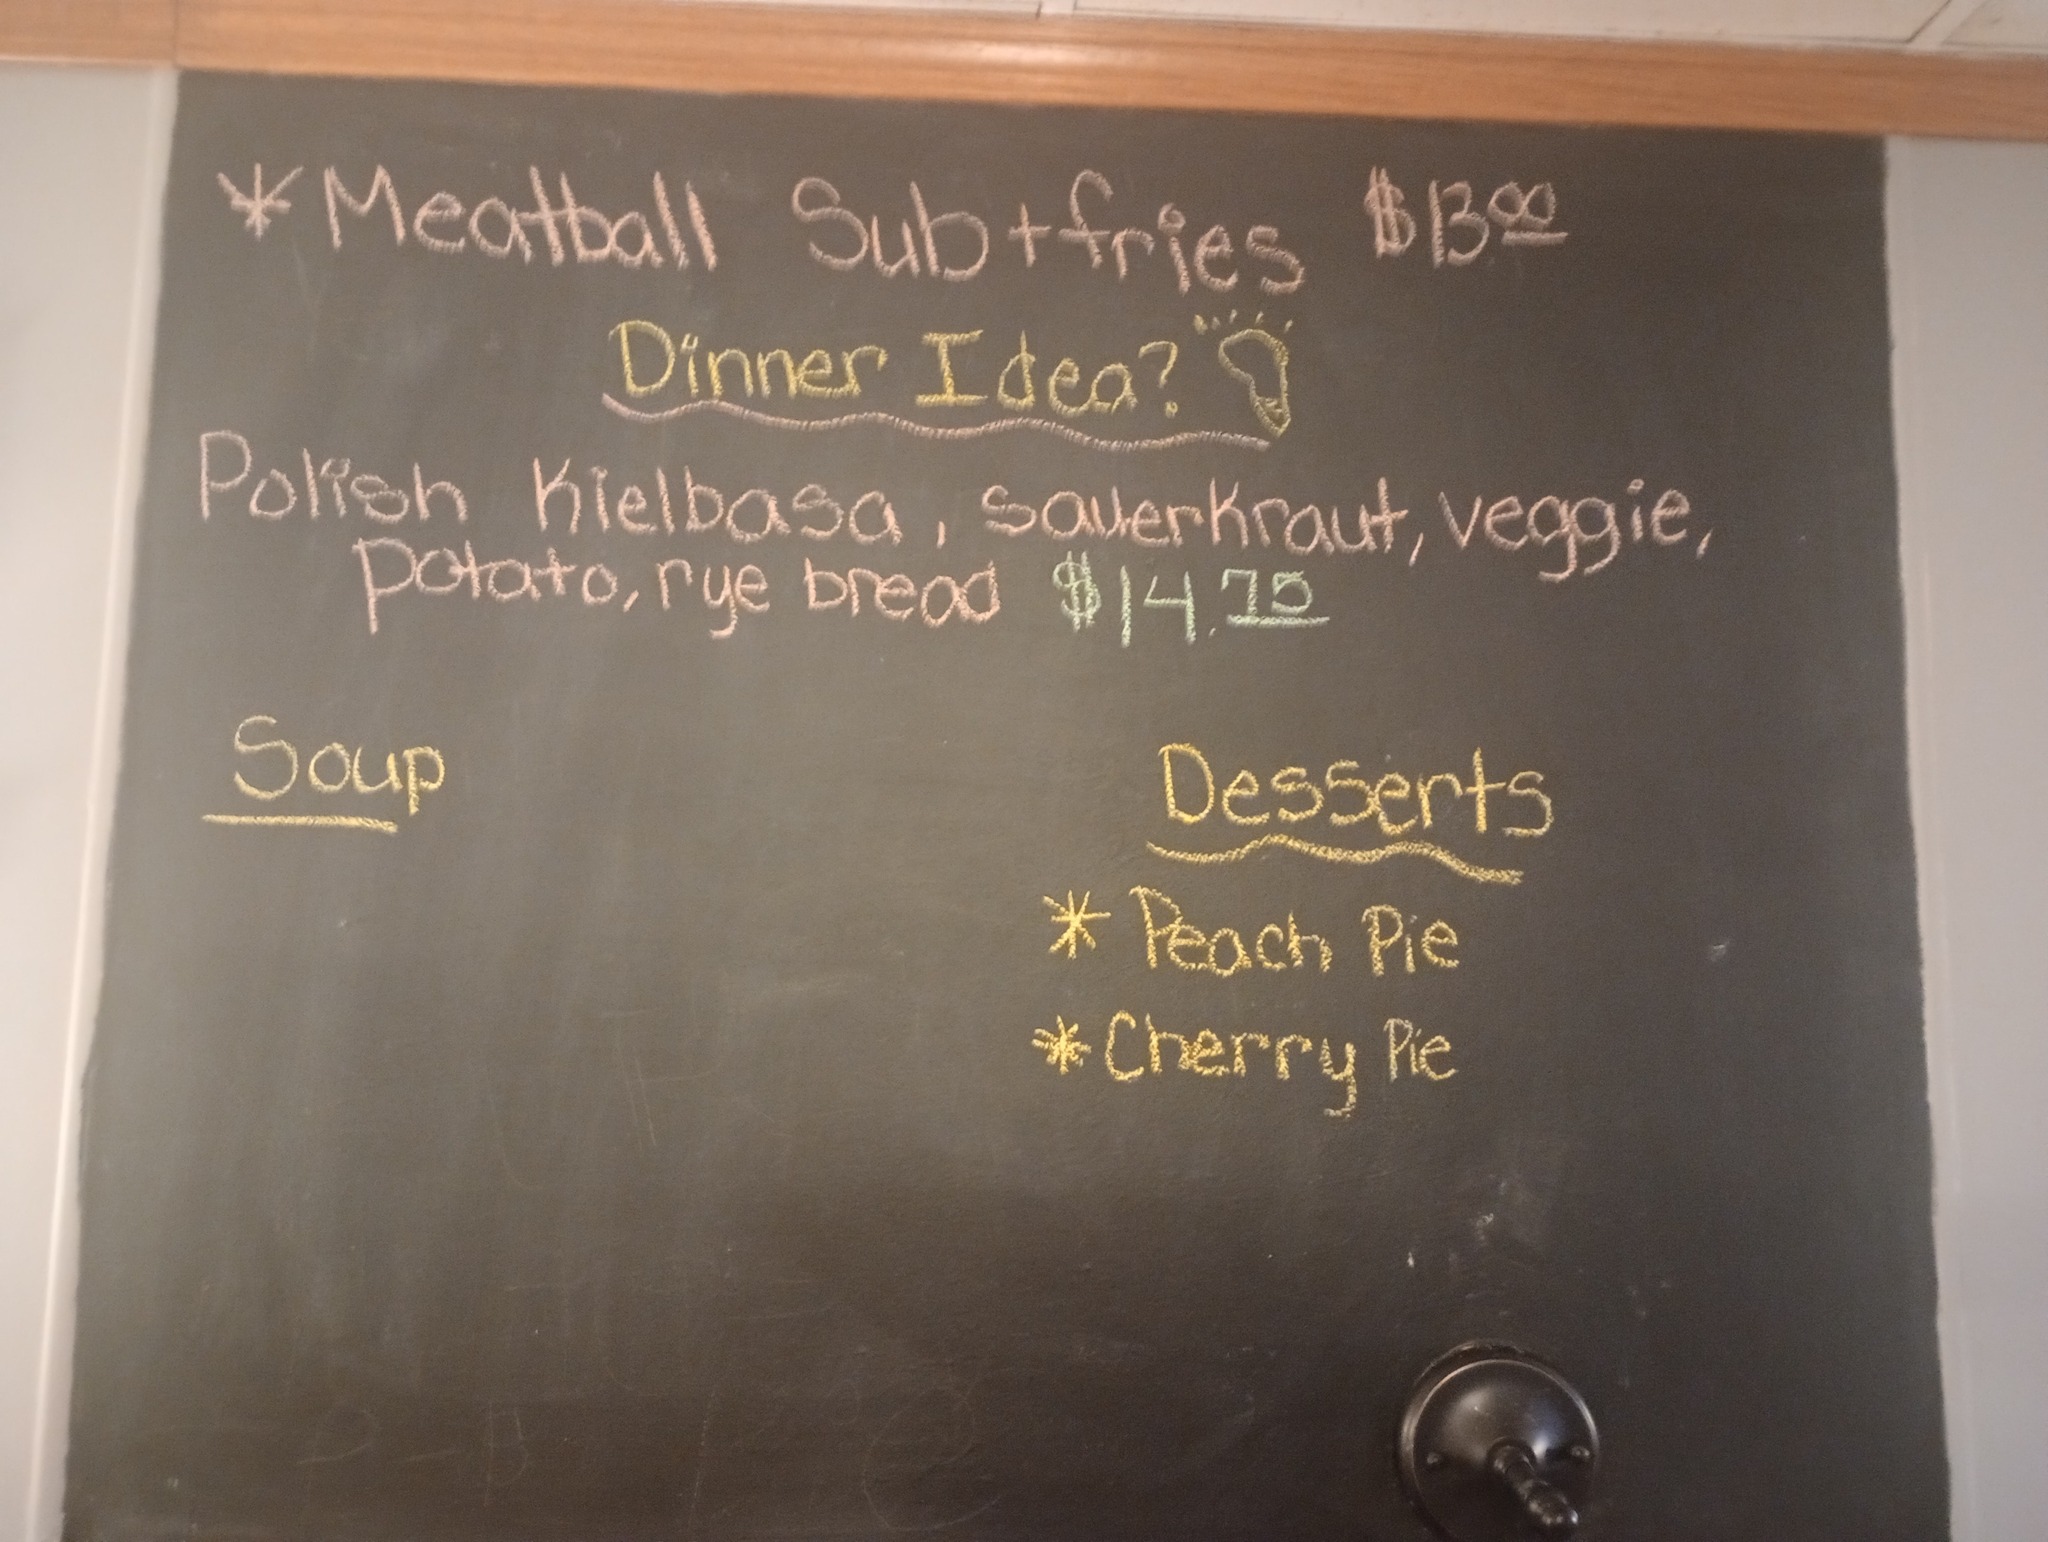 *Meatball Sub+fries $13.00
Dinner Idea?
Polish Kielbasa, sauerkraut, veggie,
potato, rye bread $14.75
Soup
Desserts
* Peach Pie
* Cherry Pie